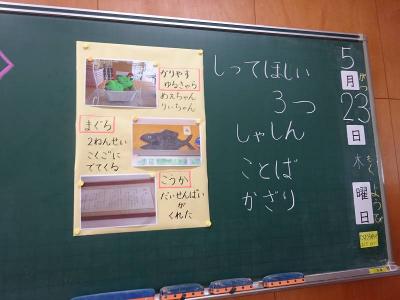 なりやす
ゆるきゃら
めぇちゃん
りぃちゃん
まぐろ
2ねんせい
こくごに
でてくる
こうか
だいせんぱい
が
くれた
しってほしい
3つ
しゃしん
ことば
かざり
5
月
がつ
23
日
木
もく
曜
日
ようび